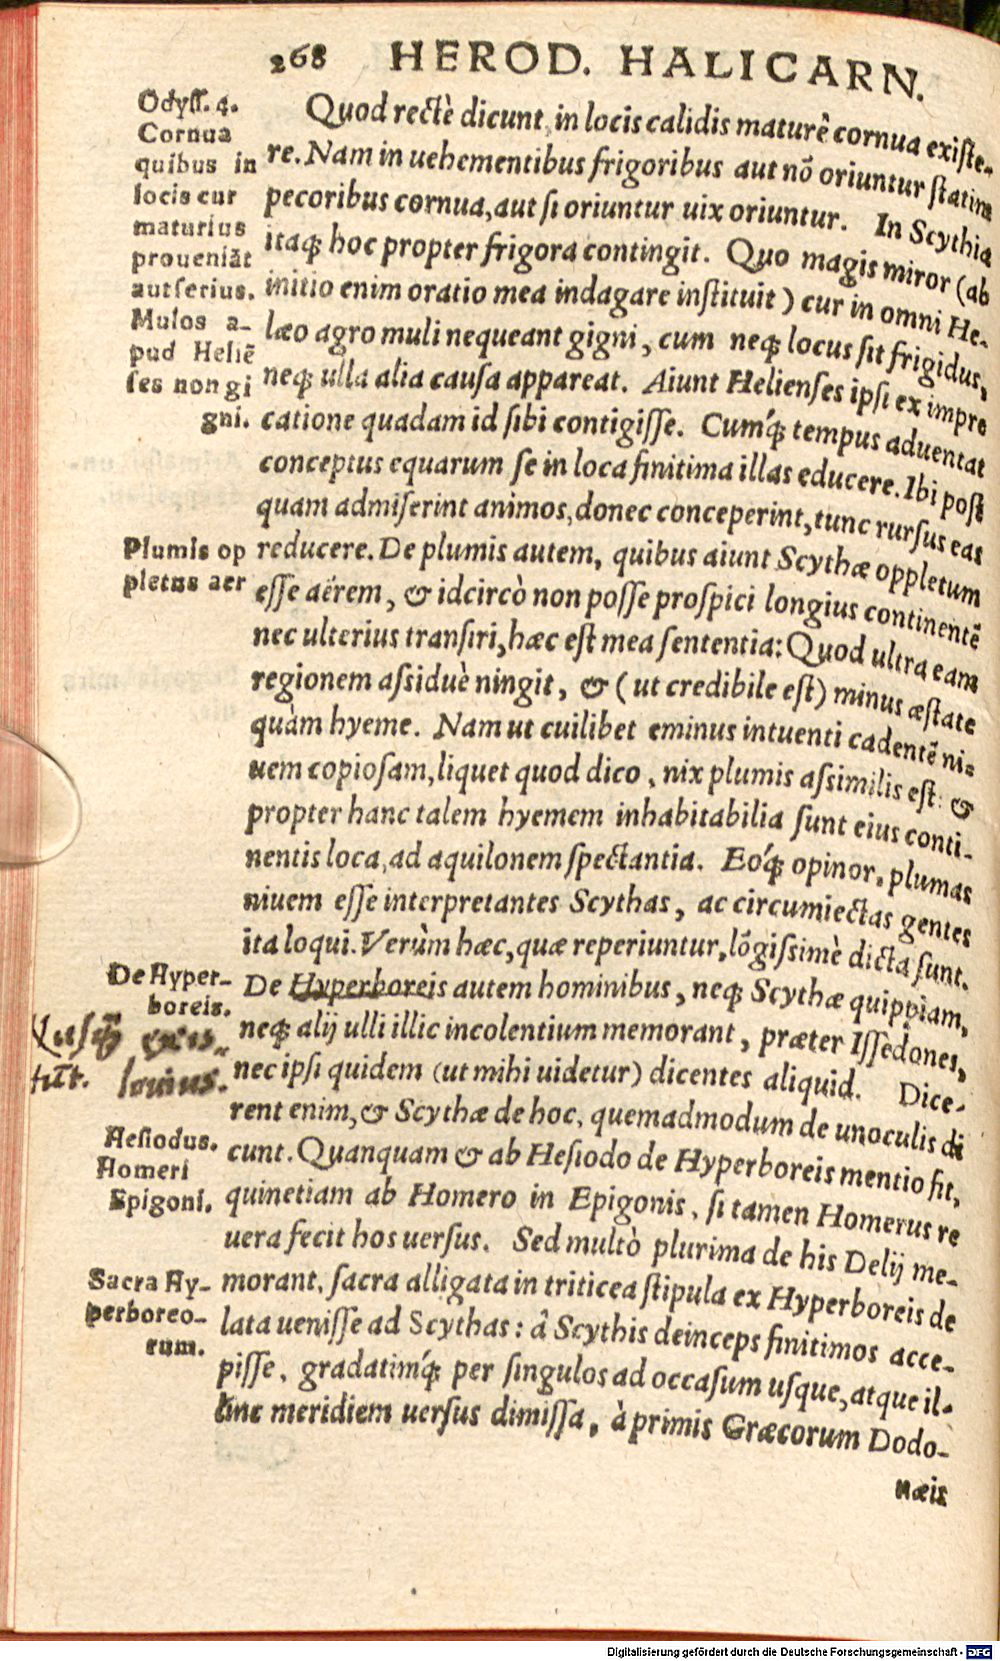 268 HEROD. HALICARN.
Odyss. 4.
Cornua
quibus in
locis cur
maturius
proueniãt
aut serius.
Mulos a-
pud Heliẽ
ses non gi
gni.
Quod rectè dicunt, in locis calidis maturè cornua existe-
re. Nam in uehementibus frigoribus aut nõ oriuntur statim
pecoribus cornua, aut si oriuntur uix oriuntur. In Scythia
itaq; hoc propter frigora contingit. Quo magis miror (ab
initio enim oratio mea indagare instituit) cur in omni He-
læo agro muli nequeant gigni, cum neq; locus sit frigidus,
neq; ulla alia causa appareat. Aiunt Helienses ipsi ex impre
catione quadam id sibi contigisse. Cumq́; tempus aduentat
conceptus equarum se in loca finitima illas educere. Ibi post
quam admiserint animos, donec conceperint, tunc rursus eas
Plumis op
pletus aer
reducere. De plumis autem, quibus aiunt Scythæ oppletum
esse aërem, & idcircò non posse prospici longius continentẽ
nec ulterius transiri, hæc est mea sententia: Quod ultra eam
regionem assiduè ningit, & (ut credibile est) minus æstate
quàm hyeme. Nam ut cuilibet eminus intuenti cadentẽ ni-
uem copiosam, liquet quod dico, nix plumis assimilis est: &
propter hanc talem hyemem inhabitabilia sunt eius conti-
nentis loca, ad aquilonem spectantia. Eoq́; opinor, plumas
niuem esse interpretantes Scythas, ac circumiectas gentes
ita loqui. Verùm hæc, quæ reperiuntur, lõgissimè dicta sunt.
De Hyper-
boreis.
De Hyperboreis autem hominibus, neq; Scythæ quippiam,
neq; alij ulli illic incolentium memorant, præter Issedones,
nec ipsi quidem (ut mihi uidetur) dicentes aliquid. Dice-
rent enim, & Scythæ de hoc, quemadmodum de unoculis di
Hesiodus.
Homeri
Epigoni.
cunt. Quanquam & ab Hesiodo de Hyperboreis mentio fit,
quinetiam ab Homero in Epigonis, si tamen Homerus re
uera fecit hos uersus. Sed multò plurima de his Delij me-
Sacra Hy-
perboreo-
rum.
morant, sacra alligata in triticea stipula ex Hyperboreis de
lata uenisse ad Scythas: â Scythis deinceps finitimos acce-
pisse, gradatimq́; per singulos ad occasum usque, atque il-
linc meridiem uersus dimissa, à primis Græcorum Dodo-
næis
Digitalisierung gefördert durch die Deutsche Forschungsgemeinschaft - DFG